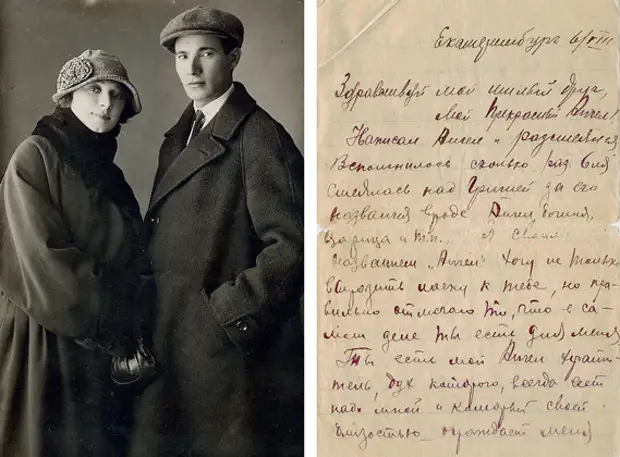 Екатеринбург 6/VIII
Здравствуй мой милый друг,
мой прекрасный Ангел!
Написал Ангел и рассмеялся
Вспомнилось сколько раз
смеялась над Гришей за его
названия вроде Ангел, богиня,
царица и т.п.. Я своим
названием "Ангел" хочу не только
выразить ласку к тебе, но пра-
вильно отмечаю то, что в са-
мом деле ты есть для меня.
Ты есть мой Ангел храни-
тель, дух которого, всегда веет
надо мной и который своей
близостью ограждает меня